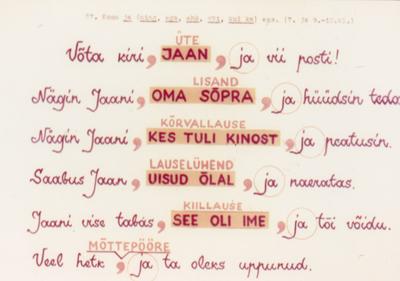 57. Koma ja (ning, ega, ehk, või, kui ka) ees. (7. ja 9.-10.kl.)
ÜTE
Võta kiri, JAAN, ja vii posti!
LISAND
Nägin Jaani, OMA SÕPRA, ja hüüdsin teda
KÕRVALLAUSE
Nägin Jaani, KES TULI KINOST, ja peatusin.
LAUSELÜHEND
Saabus Jaan, UISUD ÕLAL, ja naeratas.
KIILLAUSE
Jaani vise tabas, SEE OLI IME, ja tõi võidu.
MÕTTEPÖÖRE
Veel hetk, ja ta oleks uppunud.